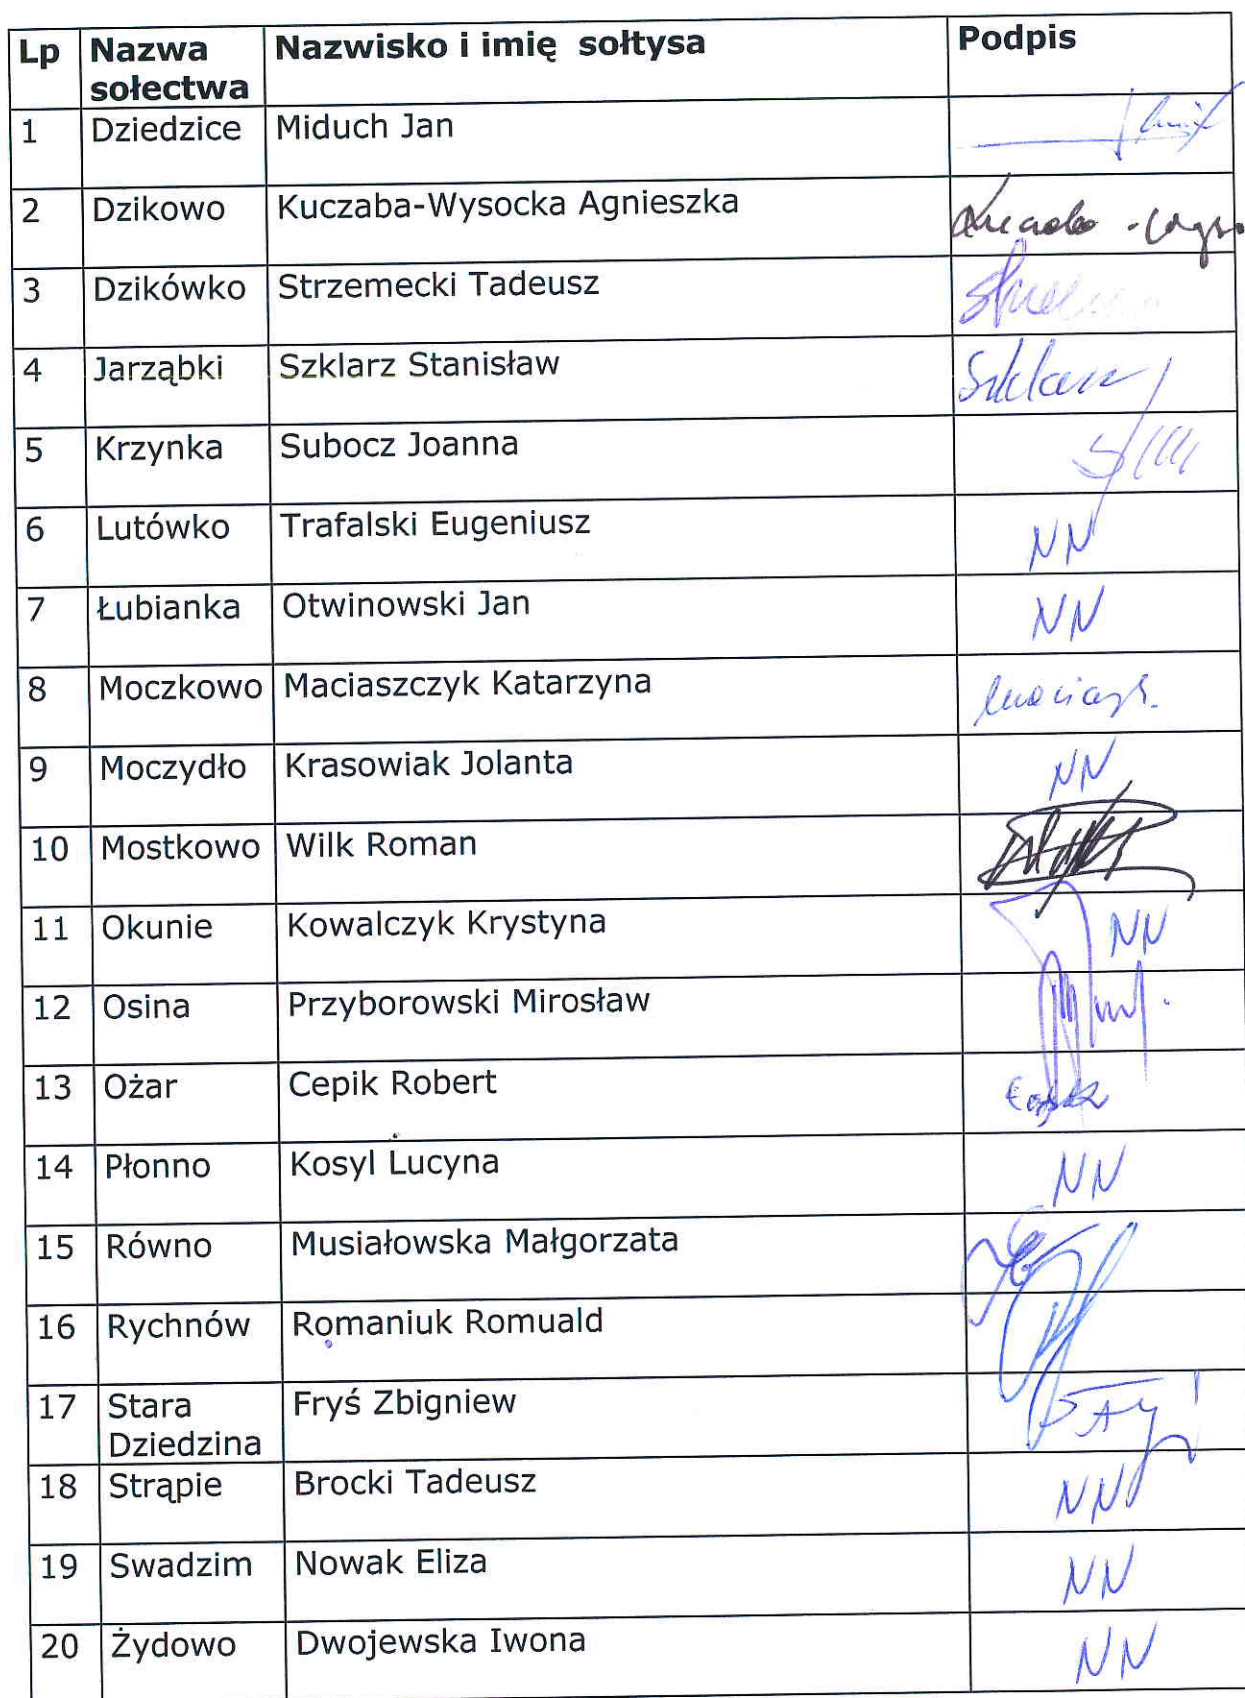 Lp Nazwa sołectwa Nazwisko i imię sołtysa Podpis
1 Dziedzice Miduch Jan
2 Dzikowo Kuczaba-Wysocka Agnieszka
3 Dzikówko Strzemecki Tadeusz
4 Jarząbki Szklarz Stanisław Szklarz
5 Krzynka Subocz Joanna
6 Lutówko Trafalski Eugeniusz NN
7 Łubianka Otwinowski Jan NN
8 Moczkowo Maciaszczyk Katarzyna
9 Moczydło Krasowiak Jolanta NN
10 Mostkowo Wilk Roman
11 Okunie Kowalczyk Krystyna NN
12 Osina Przyborowski Mirosław
13 Ożar Cepik Robert
14 Płonno Kosyl Lucyna NN
15 Równo Musiałowska Małgorzata
16 Rychnów Romaniuk Romuald
17 Stara Dziedzina Fryś Zbigniew
18 Strąpie Brocki Tadeusz NN
19 Swadzim Nowak Eliza NN
20 Żydowo Dwojewska Iwona NN